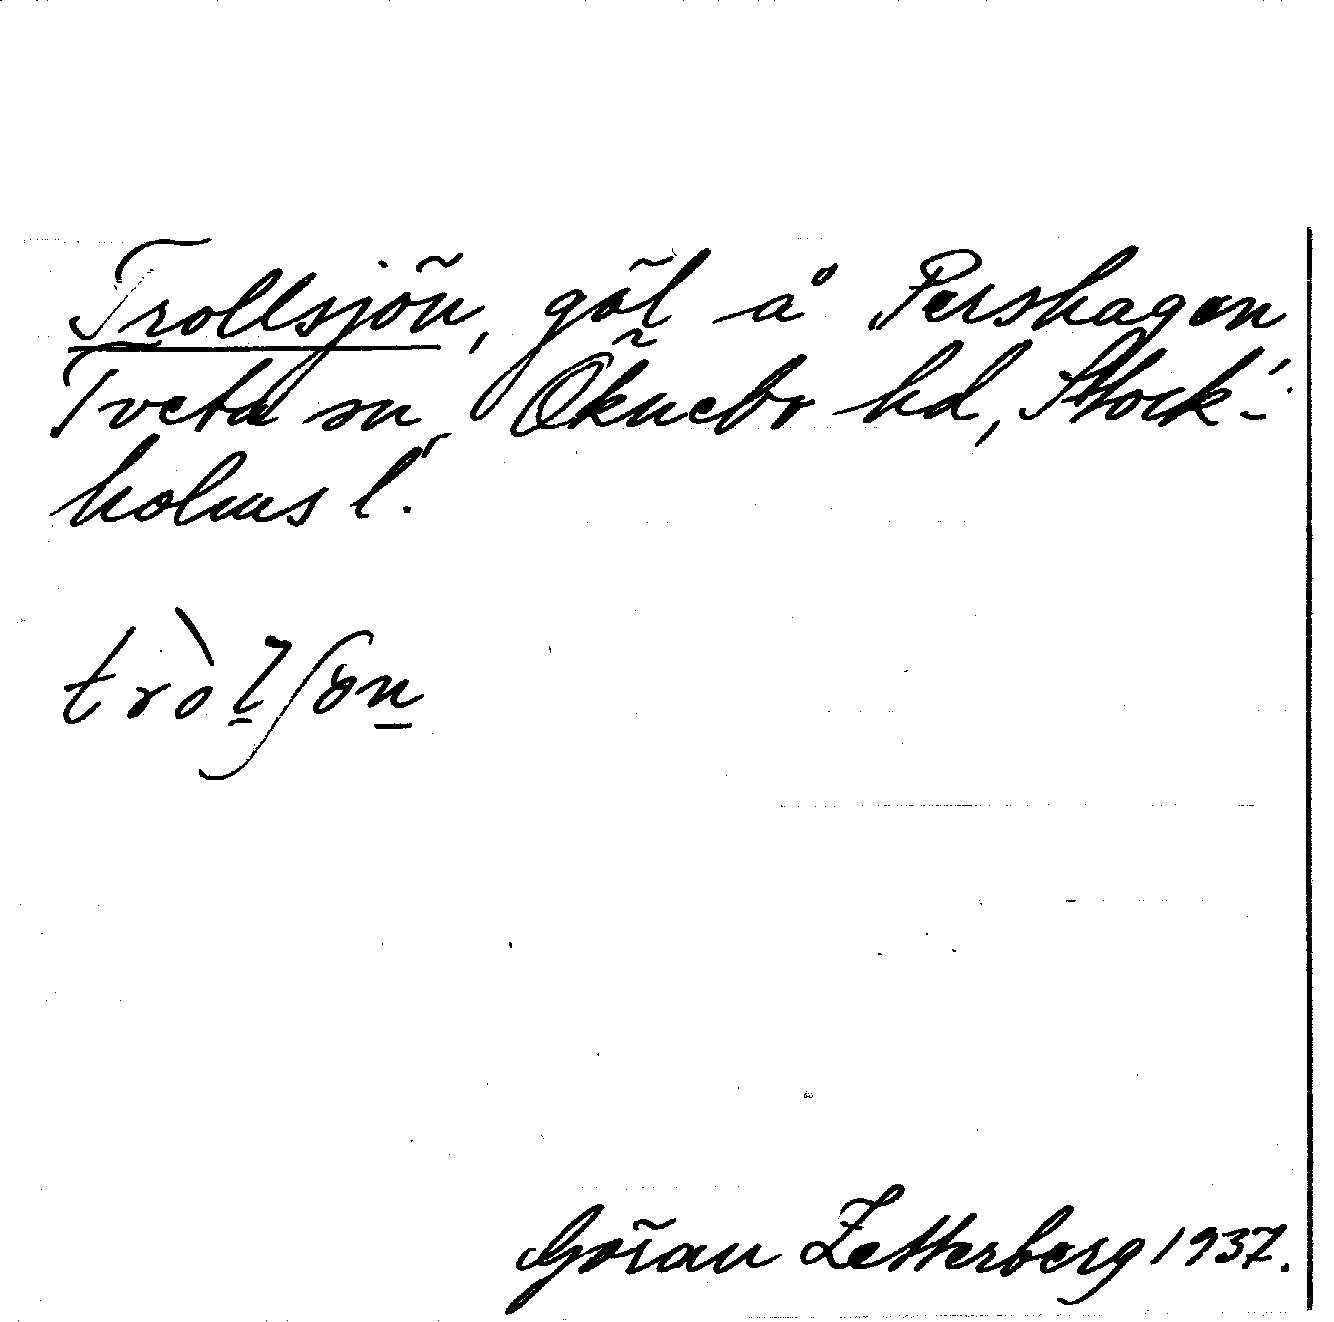 Trollsjön, göl å Pershagen,
Tveta sn, Öknebo hd, Stock-
holms l.
tròlʃön
Göran Zetterberg 1937.